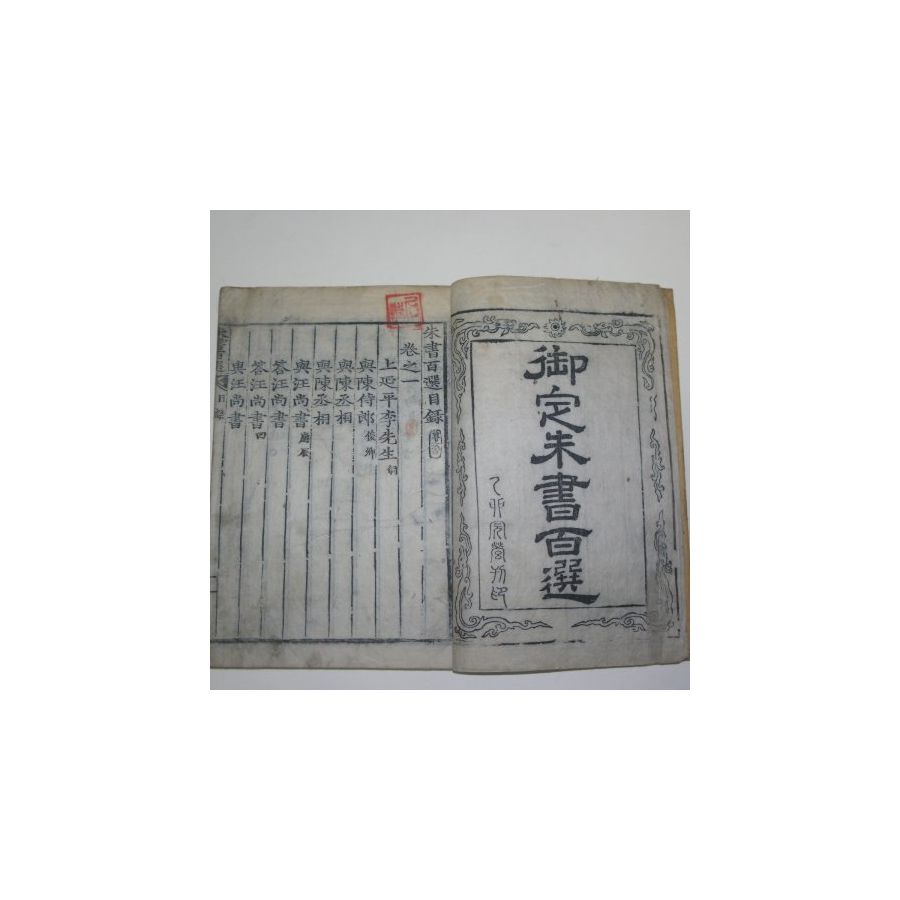 御定朱書百選
乙卯完營刊印
朱書百選目錄
卷之一
上延平李先生
與陳侍郎 俊卿
與陳丞相
與陳丞相
與汪尚書
答汪尚書
答汪尚書 四
與汪尚書